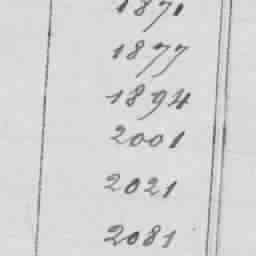 1871
1877
1894
2001
2021
2081